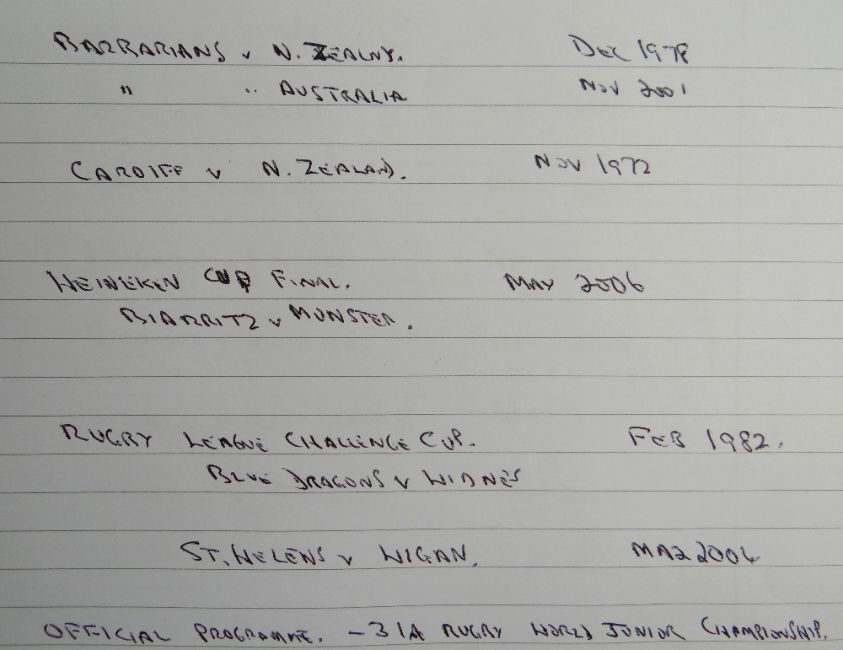 BARBARIANS v N. ZEALND. DEC 1978
" " AUSTRALIA NOV 2001
CARDIFF v N. ZEALAND. NOV 1972
HEINEKEN CUP FINAL. MAY 2006
BIARRITZ v MUNSTER.
RUGBY LEAGUE CHALLENGE CUP. FEB 1982.
BLUE DRAGONS v WIDNES
ST. HELENS v WIGAN. MAR 2004
OFFICIAL PROGRAMME. - RUGBY WORLD JUNIOR CHAMPIONSHIP.